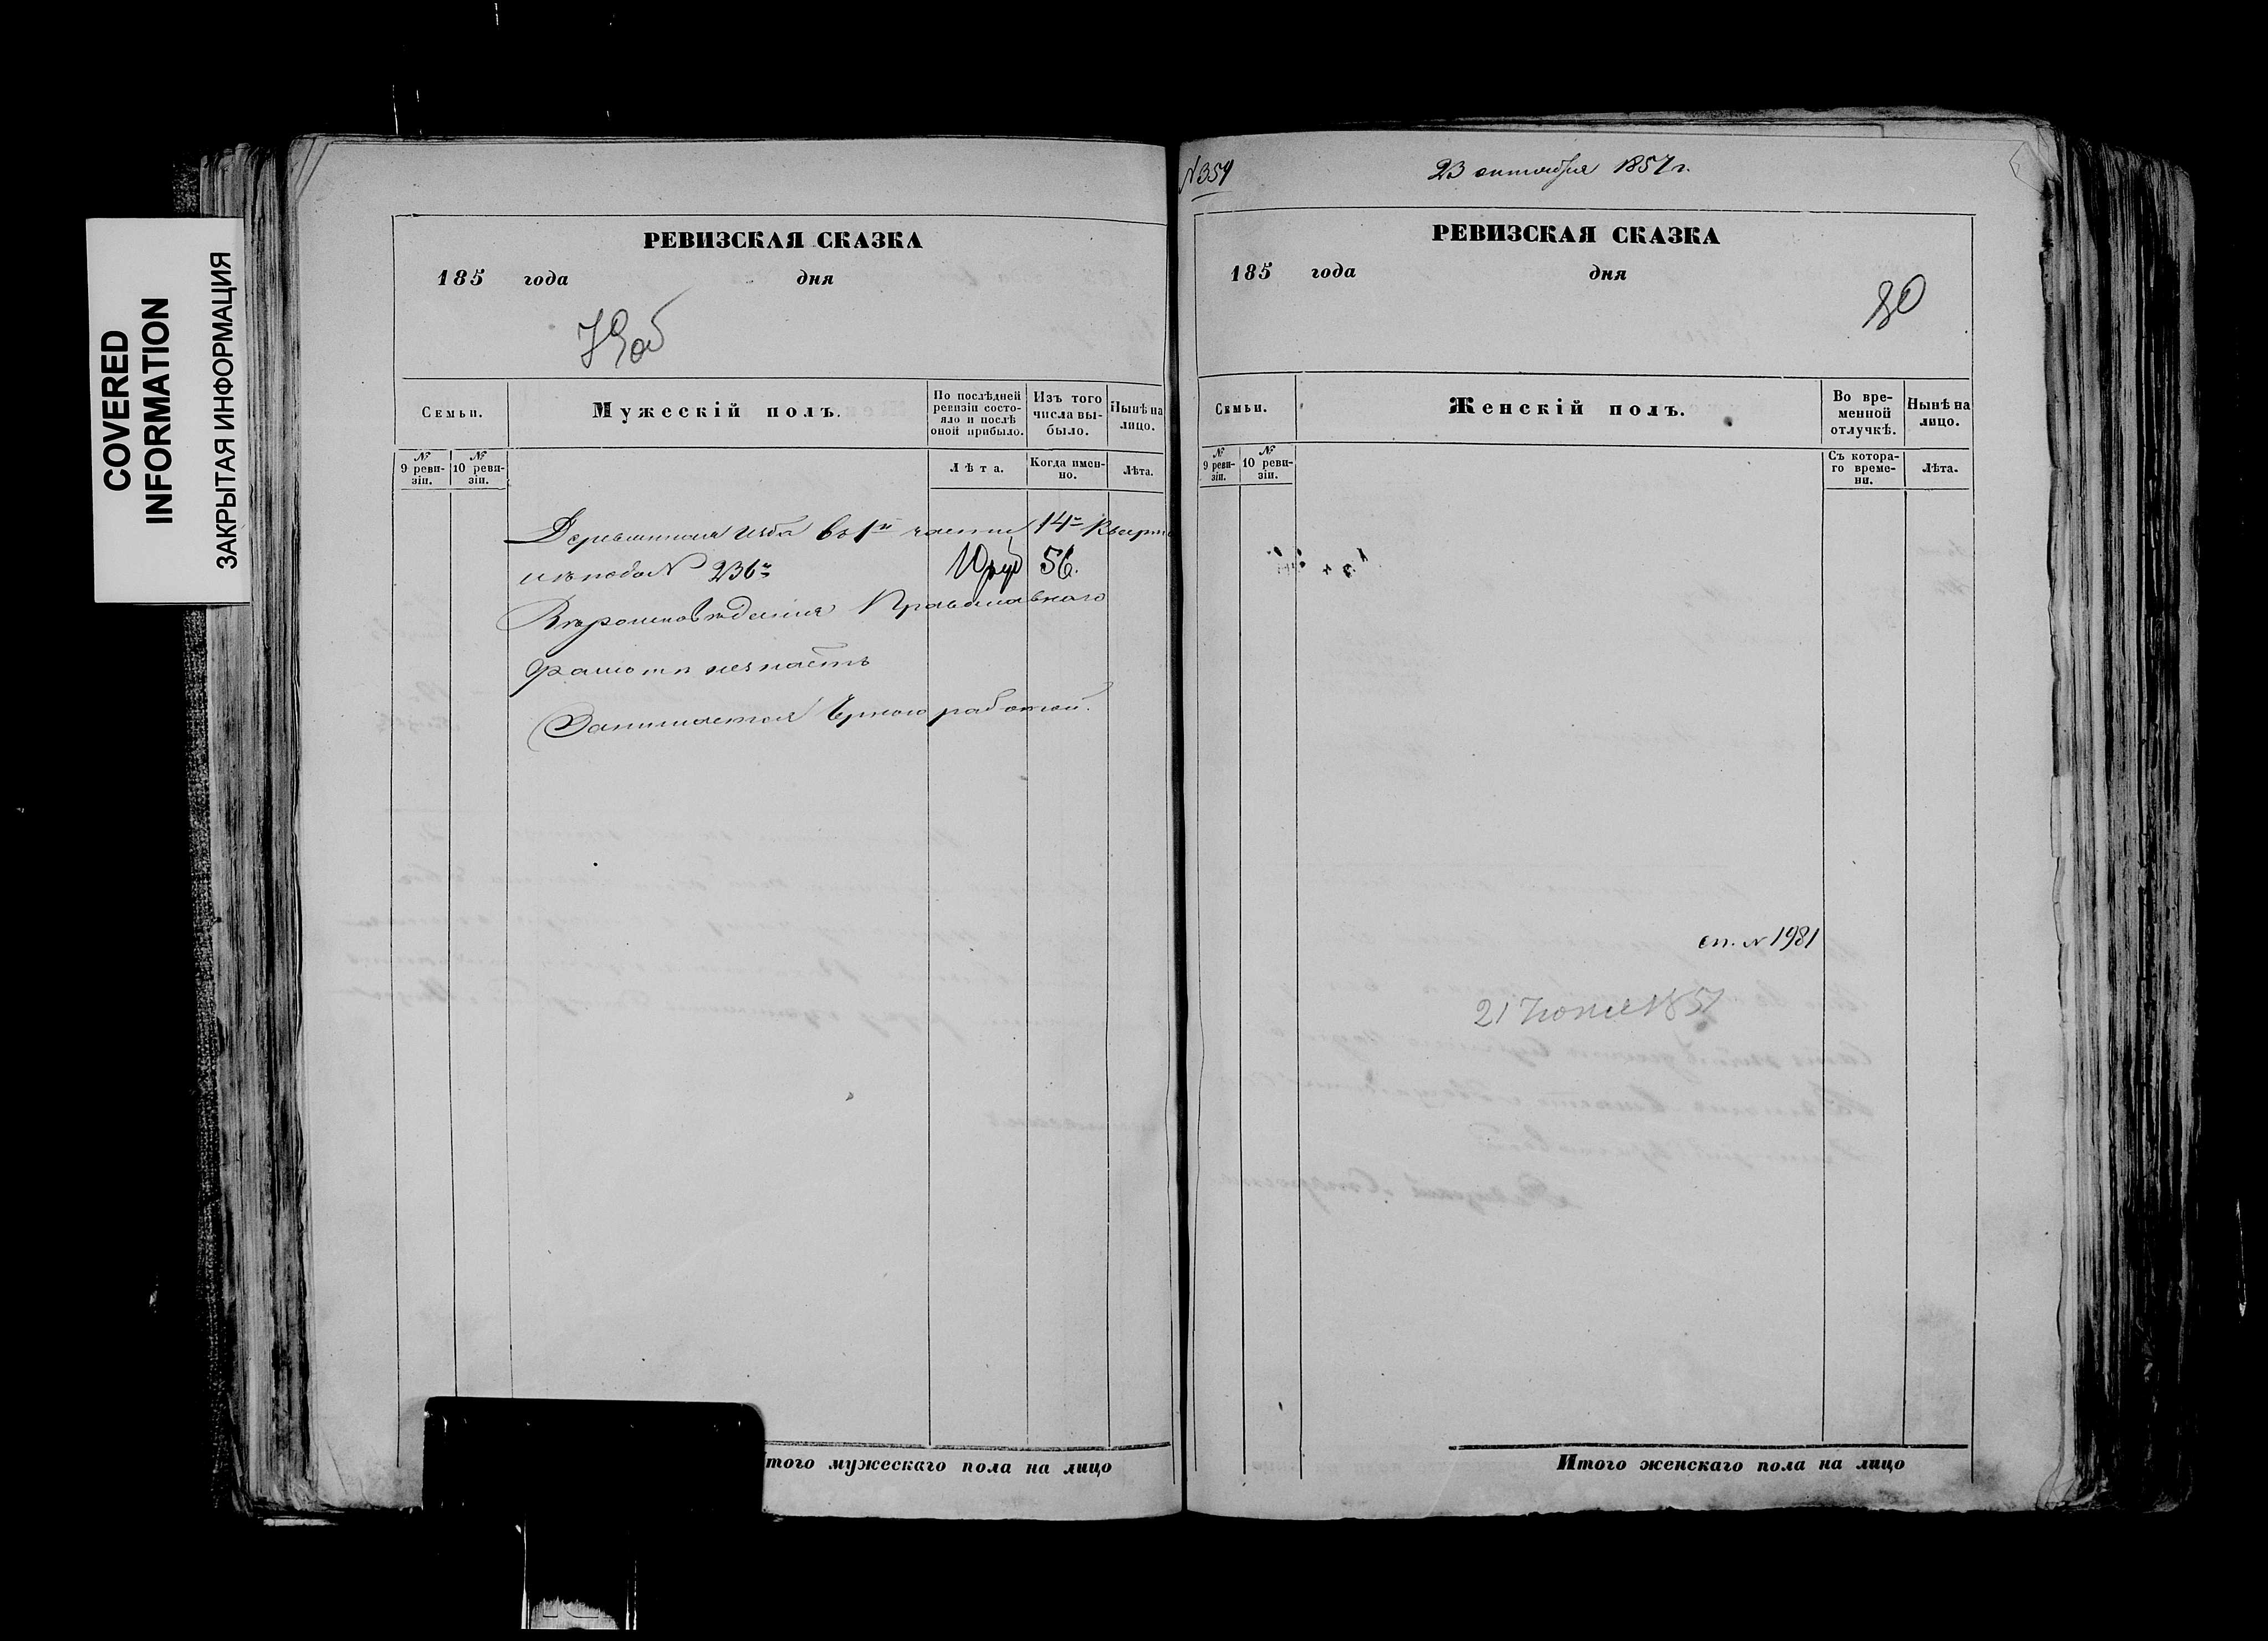 COVERED
INFORMATION
ЗАКРЫТАЯ ИНФОРМАЦИЯ
РЕВИЗСКАЯ СКАЗКА
185 года дня
79об
Семьи.
Мужескій полъ.
По послѣдней ревизіи состояло и послѣ оной прибыло.
Изъ того числа выбыло.
Нынѣ на лицо.
№ 9 ревизіи.
№ 10 ревизіи.
Лѣта.
Когда именно.
Лѣта.
Деревянная изба въ 1й части 14го Кварт
подъ № 236м 10 руб 56.
Вѣроисповѣданія Православнаго
Грамотѣ незнаетъ
Занимается Черною работой.
Итого мужескаго пола на лицо
№ 359
23 октября 1857 г.
РЕВИЗСКАЯ СКАЗКА
185 года дня
80
Семьи.
Женскій полъ.
Во временной отлучкѣ.
Нынѣ на лицо.
№ 9 ревизіи.
№ 10 ревизіи.
Съ котораго времени.
Лѣта.
сп. № 1981
21 Июня 1857
Итого женскаго пола на лицо